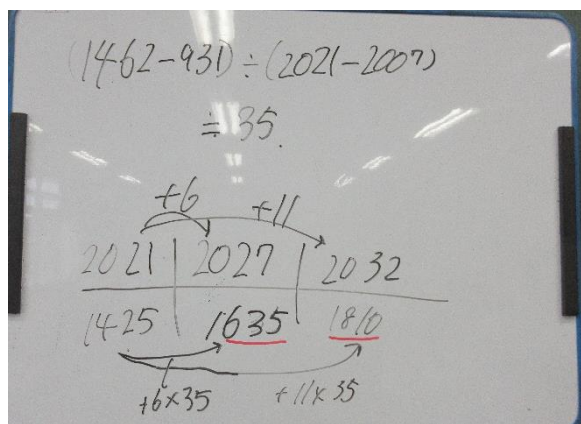 (1462-931)÷(2021-2007)
≒35.
+6 +11
2021 | 2027 | 2032
1425 | 1635 1810
+6×35 +11×35